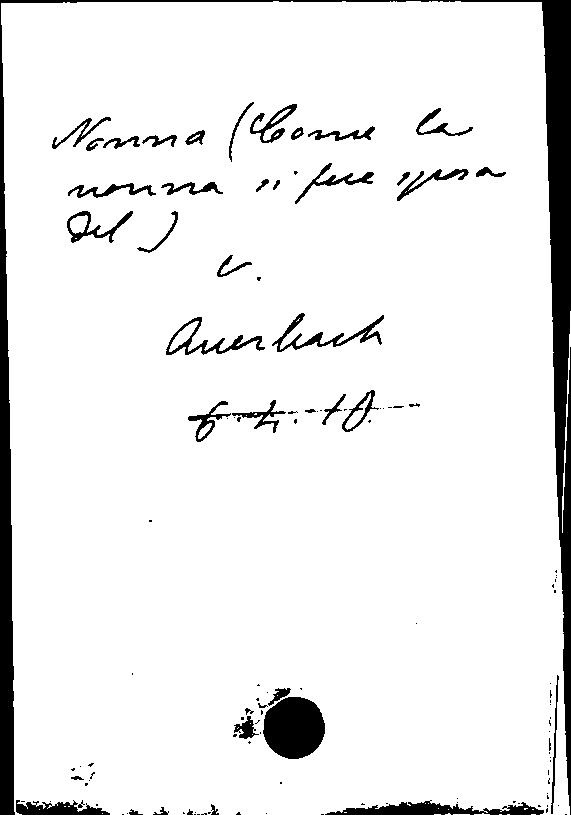 Nonna (Come la
nonna si fece sposa
del)
v.
Auerbach
6.4.10.